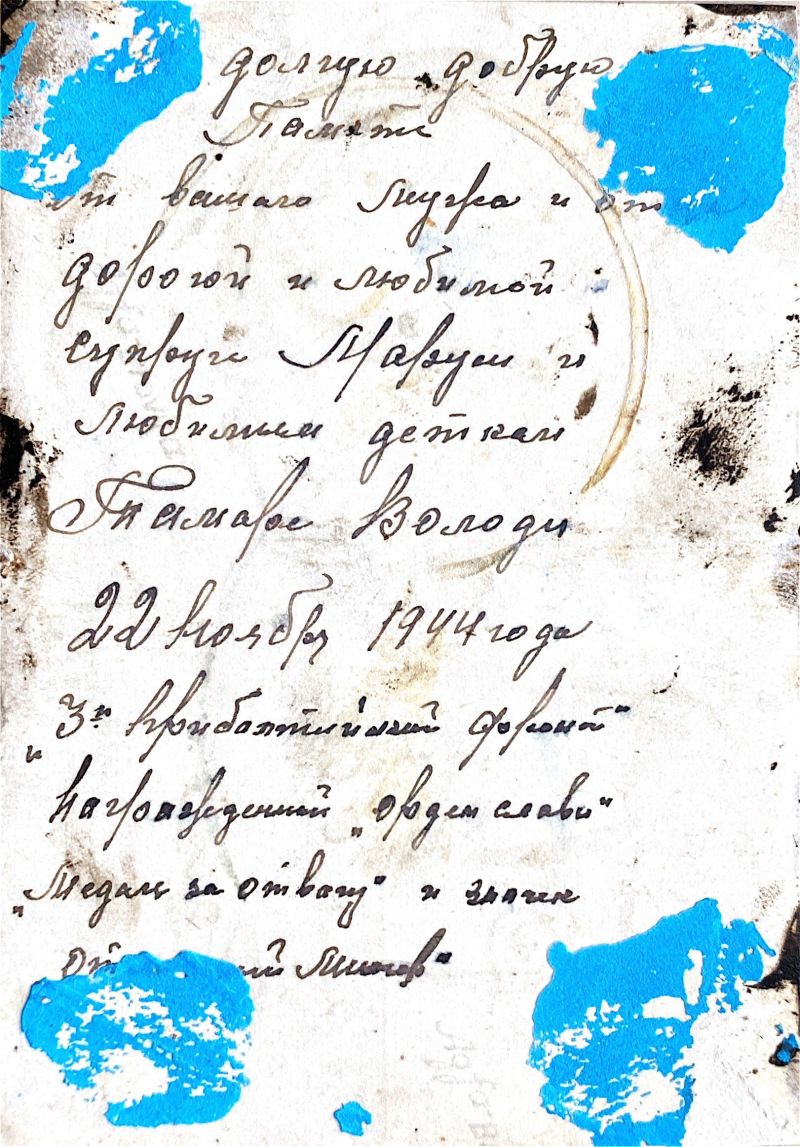 долгую добрую
Память
от вашаго мужа и от
дорогой и любимой
супруге Маруси и
любимым деткам
Тамаре Володи
22 ноября 1944 года
"3й прибалтийский фронт"
награжденный "орден славы"
"Медаль за отвагу" и значек
Минер"